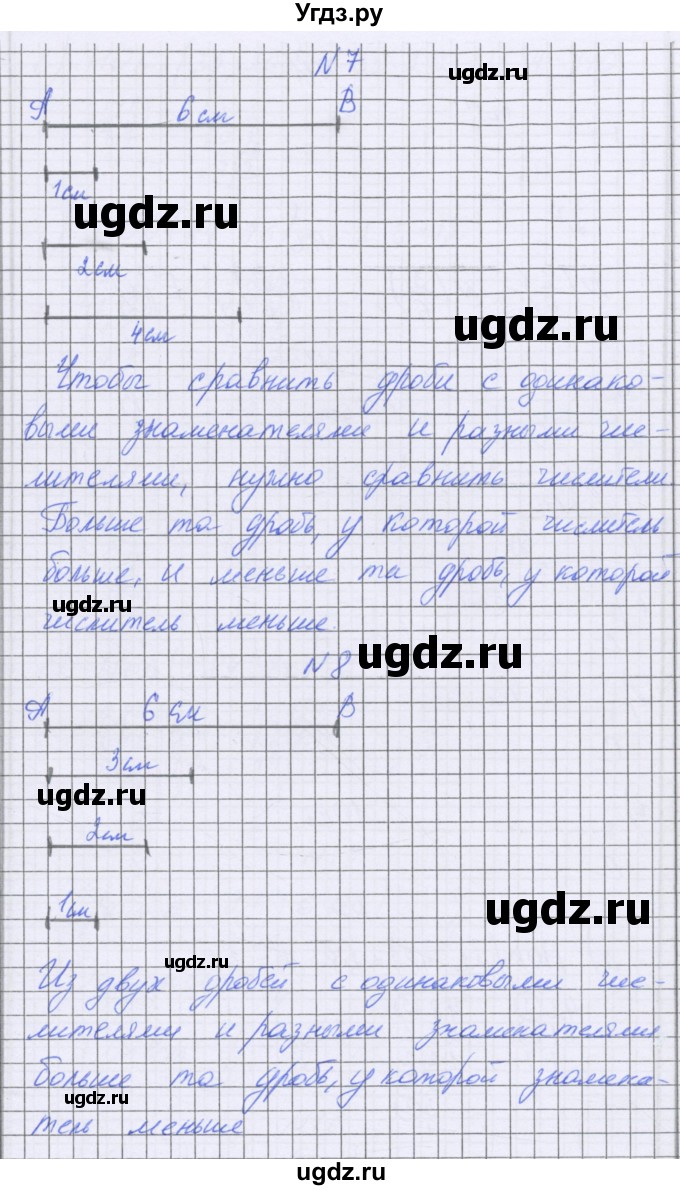 Угдз.ру
N 7
ugdz.ru
A 6 см B
1 см
ugdz.ru
2 см
ugdz.ru
4 см
Чтобы сравнить дроби с одинако-
выми знаменателями и разными чис-
лителями, нужно сравнить числители.
Больше та дробь, у которой числитель
больше, и меньше та дробь, у которой
ugdz.ru
числитель меньше.
N 8
ugdz.ru
A 6 см B
3 см
ugdz.ru
2 см
1 см
ugdz.ru
ugdz.ru
Из двух дробей с одинаковыми чис-
лителями и разными знаменателями
больше та дробь, у которой знамена-
ugdz.ru
тель меньше
ugdz.ru